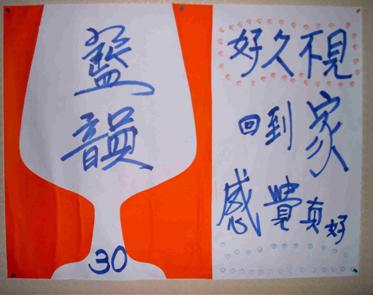 藍韻
30
好久不見
回到家
感覺真好